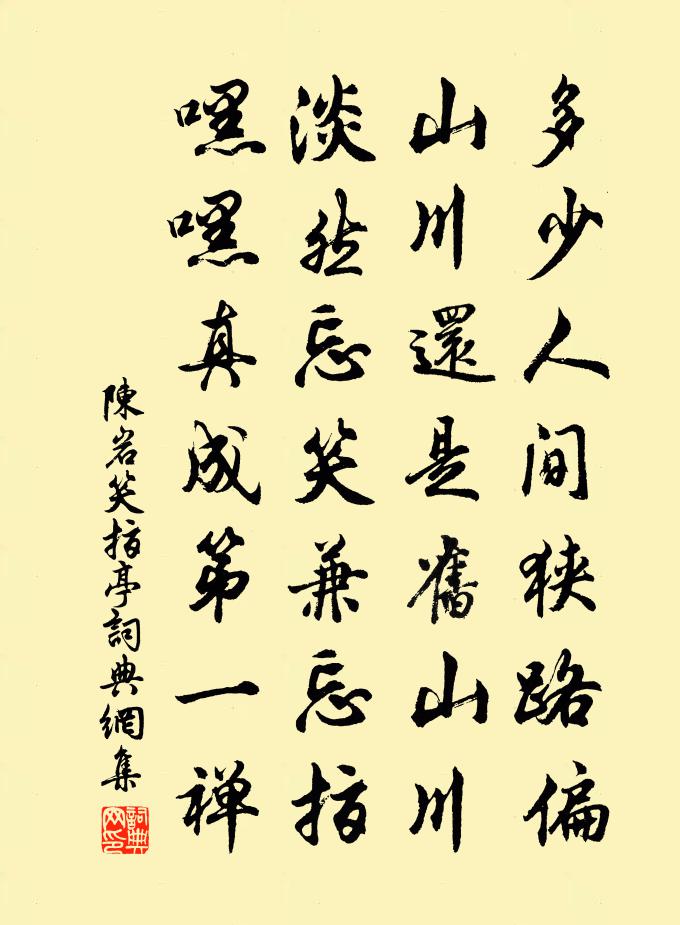 多少人间狭路偏
山川還是舊山川
淡然忘笑兼忘指
嘿嘿真成第一禅
陳岩笑指亭詞典網集
詞典網印